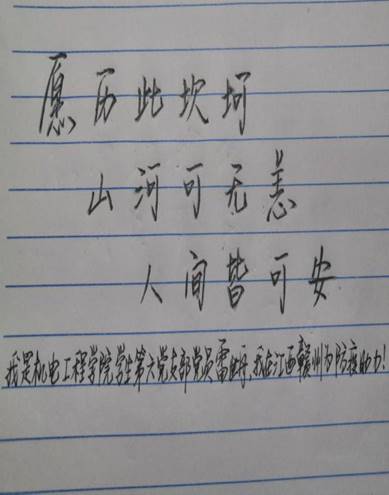 愿历此坎坷
山河可无恙
人间皆可安
我是机电工程学院学生第六党支部党员雷,我在江西赣州为防疫助力!